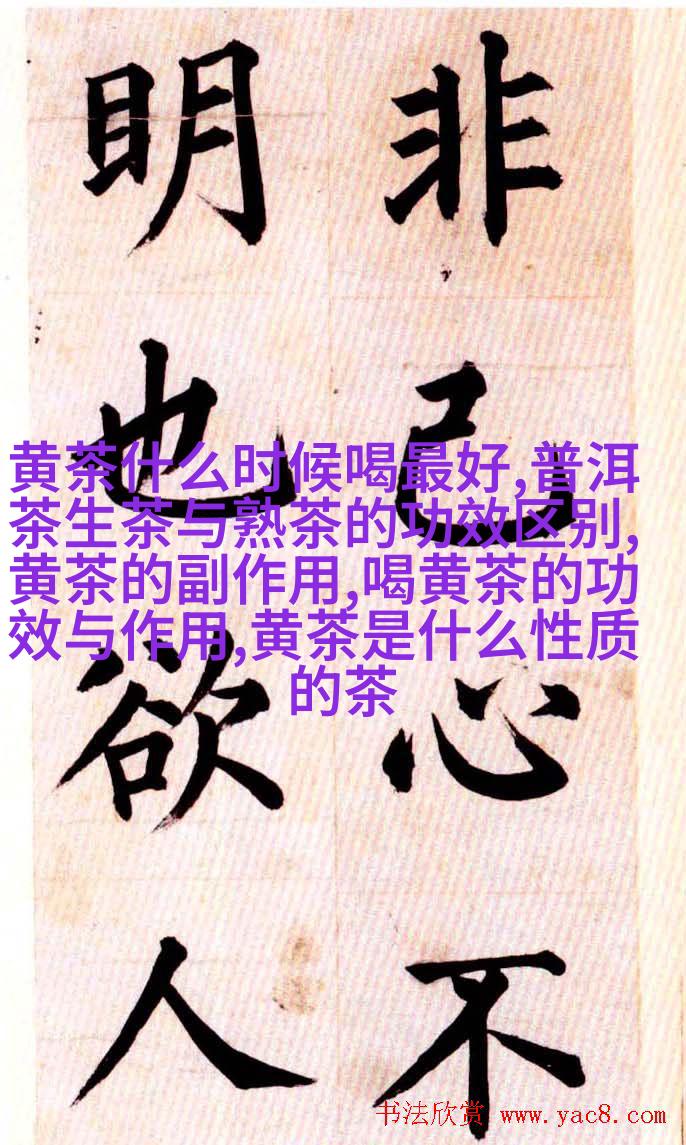 非己心不
明也欲人
黄茶什么时候喝最好,普洱
茶生茶与熟茶的功效区别,
黄茶的副作用,喝黄茶的功
效与作用,黄茶是什么性质
的茶
书法欣赏 www.yac8.com